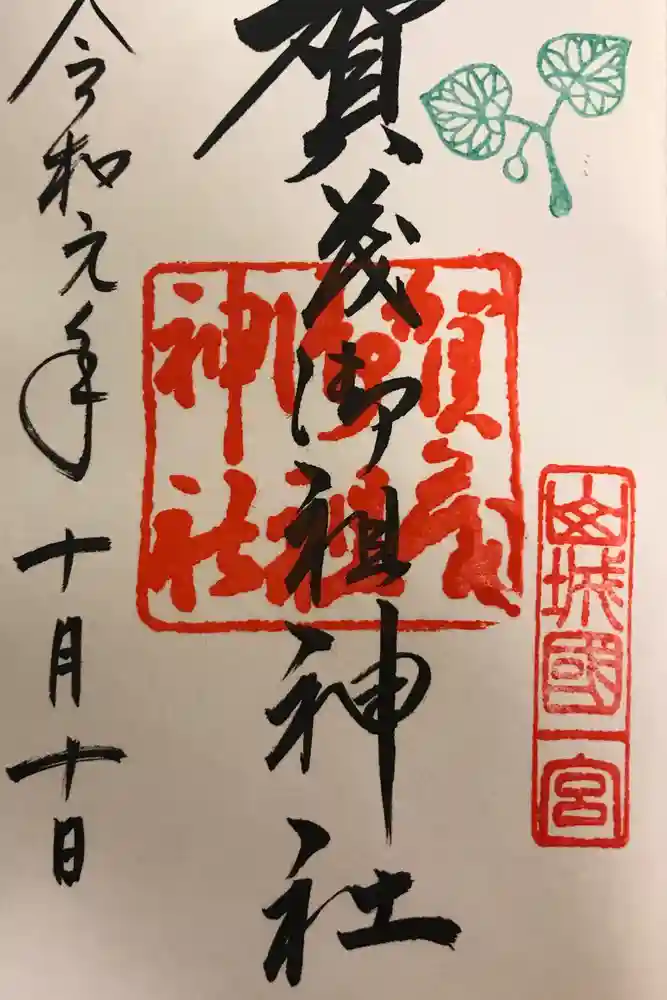 山城國一宮
賀茂御祖神社
賀茂御祖神社
令和元年十月十日